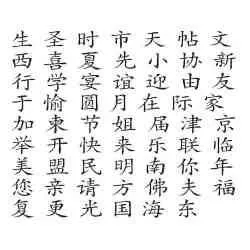 生圣时市天帖文
西喜夏先小协新
行学宴谊迎由友
于愉圆月在际家
加柬节姐来届津京
举开快姐来乐联临
美盟民明南你年
您亲请方佛夫福
复更光国海东